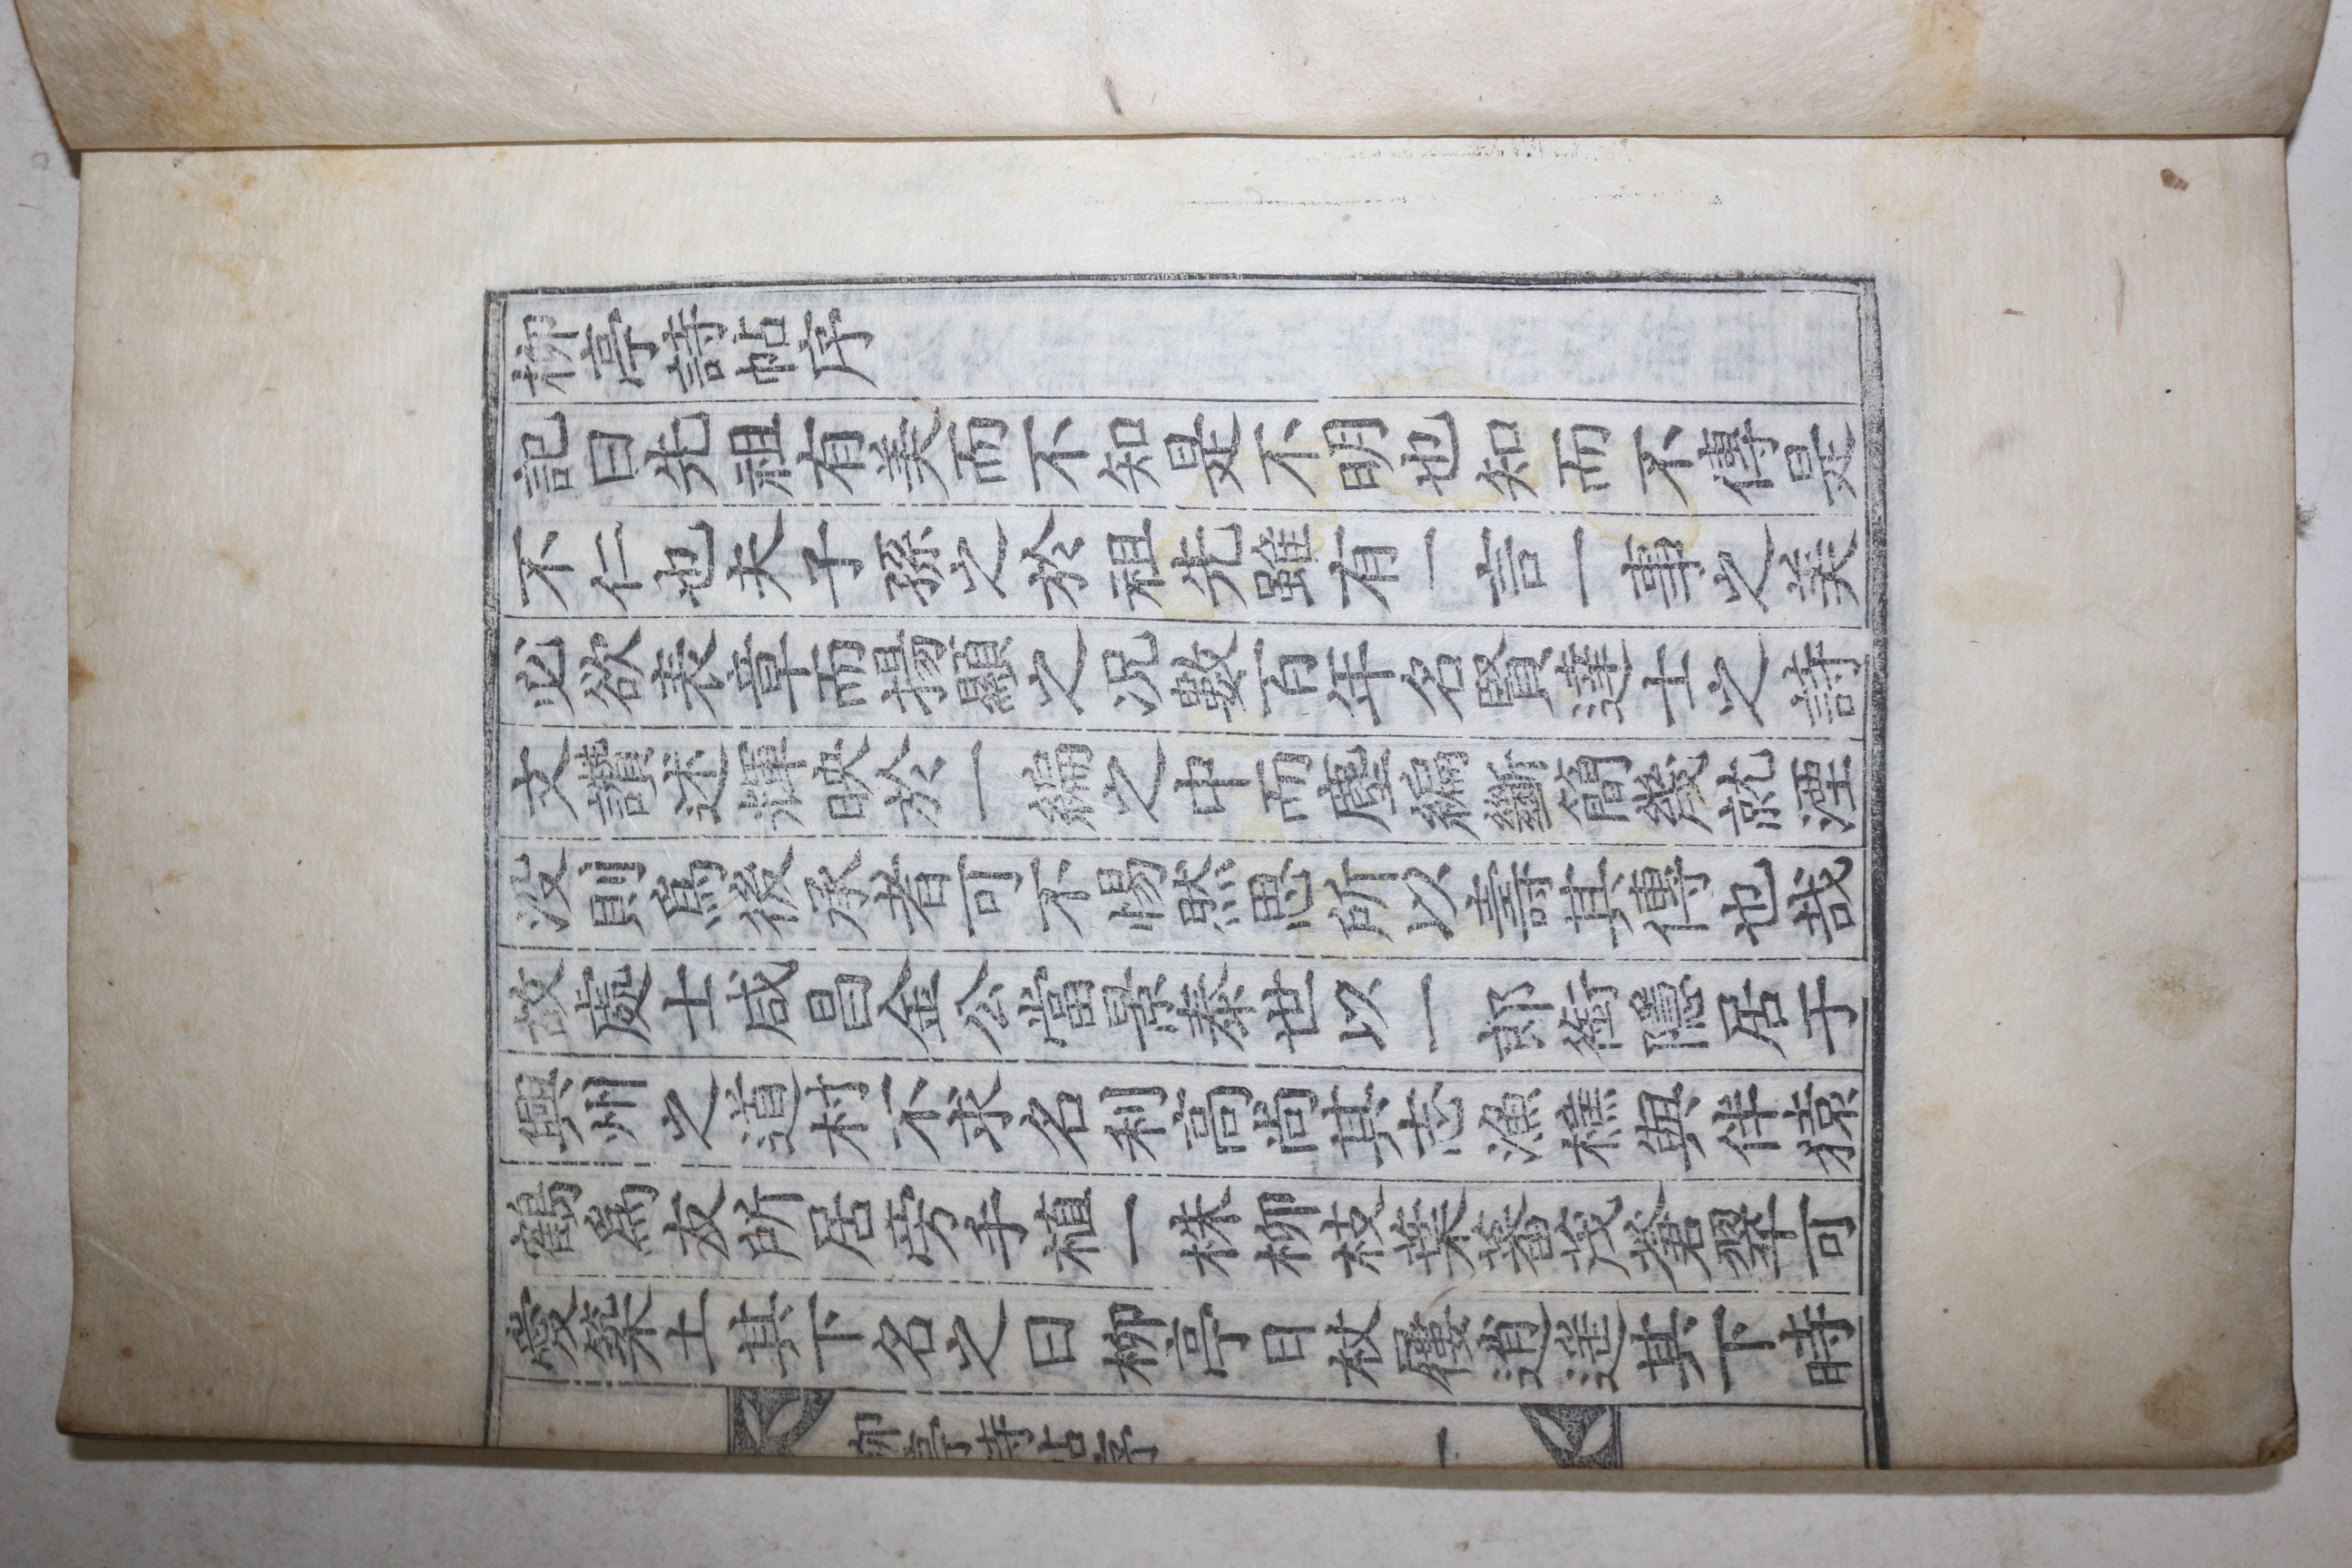 柳亭詩帖序
記曰先祖有美而不知是不明也知而不傳是
不仁也夫子孫之於祖先雖有一言一事之美
必欲表章而揚顯之況數百年名賢達士之詩
文讚述輝映於一編之中而塵編斷簡幾就湮
沒則爲後承者可不惕然思所以壽其傳也哉
故處士咸昌金公當景泰世以一郎銜隱居于
興州之道村不求名利高尚其志漁樵與伴猿
鶴爲友所居旁手植一株柳枝葉蓄茂蒼翠可
愛築土其下名之曰柳亭日杖屨逍遙其下時
柳亭詩帖序 一